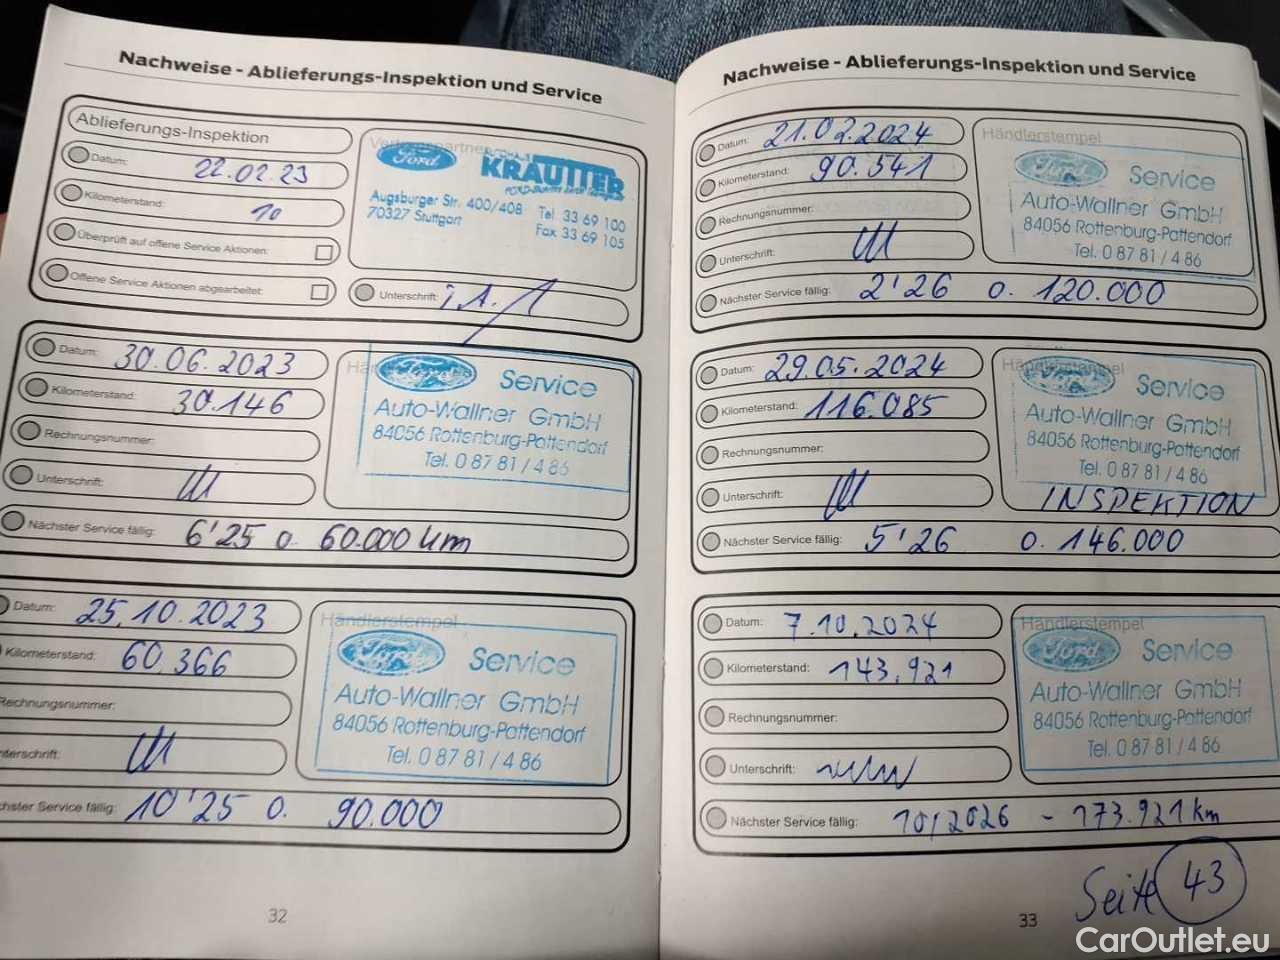 Nachweise - Ablieferungs-Inspektion und Service
Ablieferungs-Inspektion
Datum: 22.02.23
Kilometerstand: 10
Überprüft auf offene Service Aktionen:
Offene Service Aktionen abgearbeitet:
Ford
KRAUTTER
Augsburger Str. 400/408 Tel 33 69 100
70327 Stuttgart Fax 33 69 105
Unterschrift: i.A.
Datum: 30.06.2023
Kilometerstand: 30.146
Rechnungsnummer:
Unterschrift:
Nächster Service fällig: 6'25 o. 60.000 km
Ford Service
Auto-Wallner GmbH
84056 Rottenburg-Pattendorf
Tel. 0 87 81 / 4 86
Datum: 25.10.2023
Kilometerstand: 60.366
Rechnungsnummer:
nterschrift:
chster Service fällig: 10'25 o. 90.000
Händlerstempel
Ford Service
Auto-Wallner GmbH
84056 Rottenburg-Pattendorf
Tel. 0 87 81 / 4 86
32
Nachweise - Ablieferungs-Inspektion und Service
Datum: 21.02.2024
Kilometerstand: 90.541
Rechnungsnummer:
Unterschrift:
Nächster Service fällig: 2'26 o. 120.000
Händlerstempel
Ford Service
Auto-Wallner GmbH
84056 Rottenburg-Pattendorf
Tel. 0 87 81 / 4 86
Datum: 29.05.2024
Kilometerstand: 116.085
Rechnungsnummer:
Unterschrift:
Nächster Service fällig: 5'26 o. 146.000
Händlerstempel
Ford Service
Auto-Wallner GmbH
84056 Rottenburg-Pattendorf
Tel. 0 87 81 / 4 86
INSPEKTION
Datum: 7.10.2024
Kilometerstand: 143.921
Rechnungsnummer:
Unterschrift:
Nächster Service fällig: 10/2026 - 173.921 km
Händlerstempel
Ford Service
Auto-Wallner GmbH
84056 Rottenburg-Pattendorf
Tel. 0 87 81 / 4 86
33
Seite 43
CarOutlet.eu